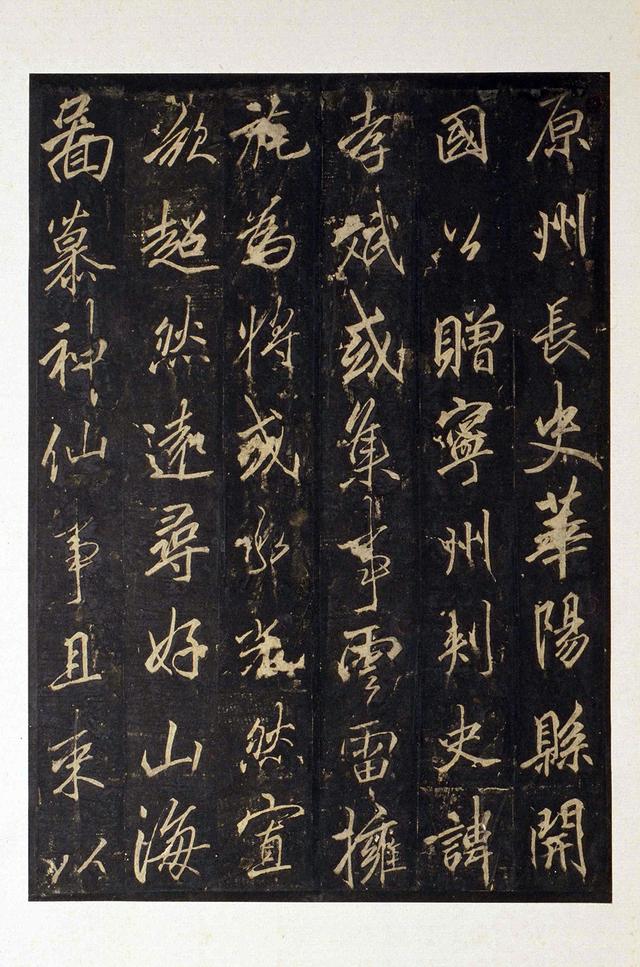 原州長史華陽縣開
國公贈寧州刺史諱
孝斌或集事雲雷擁
旄為將或然宣
欲超然遠尋好山海
圖慕神仙事且束以